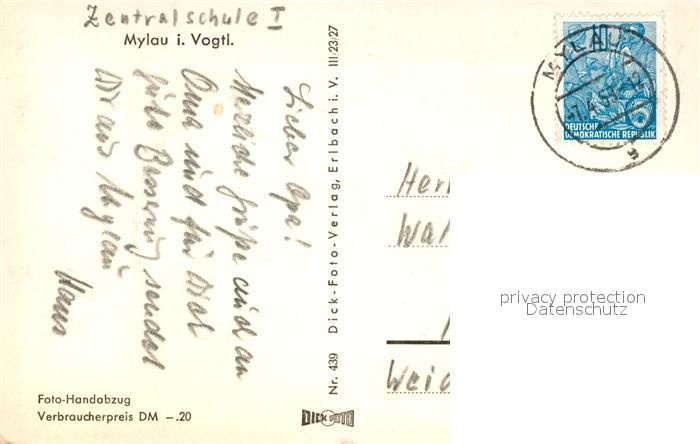 Zentralschule I
Mylau i. Vogtl.
Lieber Opa!
Herzliche Grüße auch an
Oma und für Dich
gute Besserung sendet
Dir aus Mylau
Hans
Dick-Foto-Verlag, Erlbach i. V. III/23/27
Nr. 439
MYLAU
10
DEUTSCHE
DEMOKRATISCHE REPUBLIK
Her
Wal
Weid
privacy protection
Datenschutz
Foto-Handabzug
Verbraucherpreis DM –.20
DICK FOTO